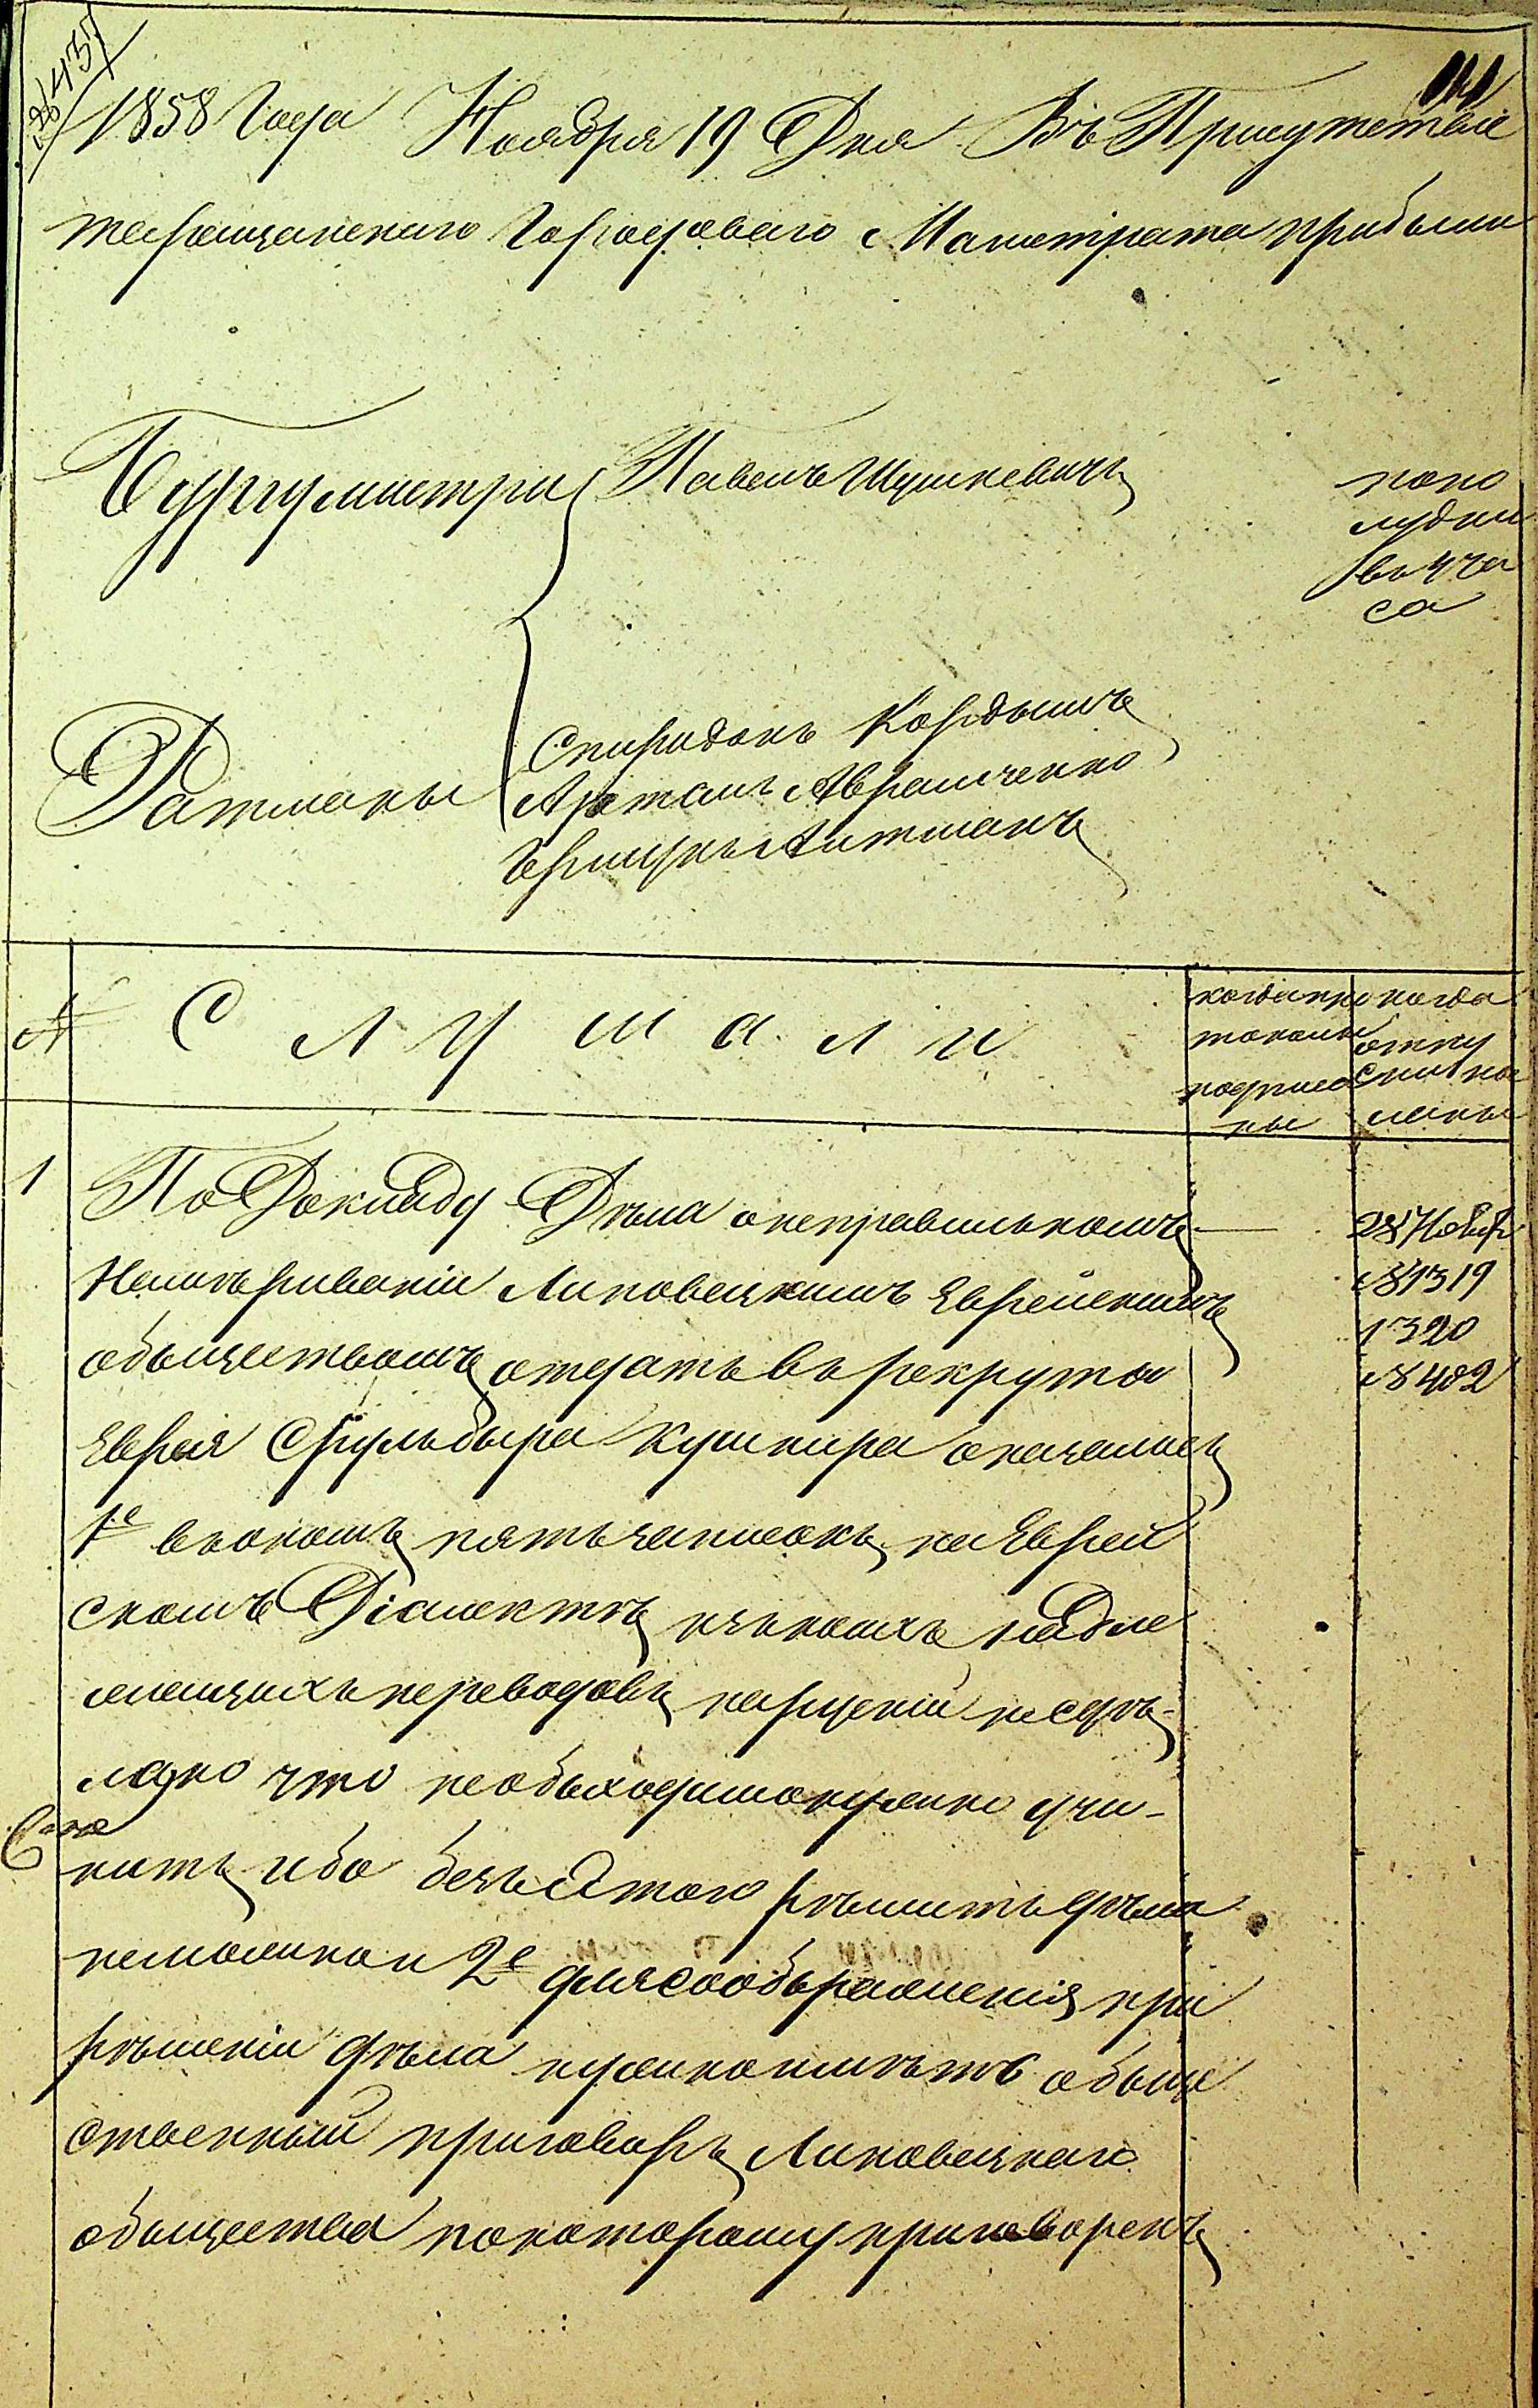 1858 Года Ноября 19 Дня Въ Присутствіе
таращанскаго Городоваго Магистрата прибыли
Бургумистри Павелъ Шушкевичъ
попо
лудни
въ 4 ча
са
Ратманы
Спиридонъ Кордышъ
Артемъ Авраменко
Гершукъ Литманъ
№ Слушали
когда про
токолы
подписа
ны
когда
отпу
скит по
1 По Докладу Дѣла о неправильномъ
Намѣриваніи Липовецкимъ Еврейскимъ
обьществомъ отдать въ рекруты
Еврея Сруль Бера Кушнира оказалось
1е въ ономъ пять записокъ на Еврей
скомъ Діалектѣ изъ коихъ надле
жащихъ переводовъ на рускій не сдѣ-
лано что необьходимо нужно учи-
нить ибо безъ Этаго рѣшить дѣла
неможно и 2е для сообьраженія при
рѣшеніи дѣла нужно имѣть обьще
ственный приговоръ Липовецкаго
обьщества по которому приговоренъ
28 Нояб
№ 1319
1320
№ 402